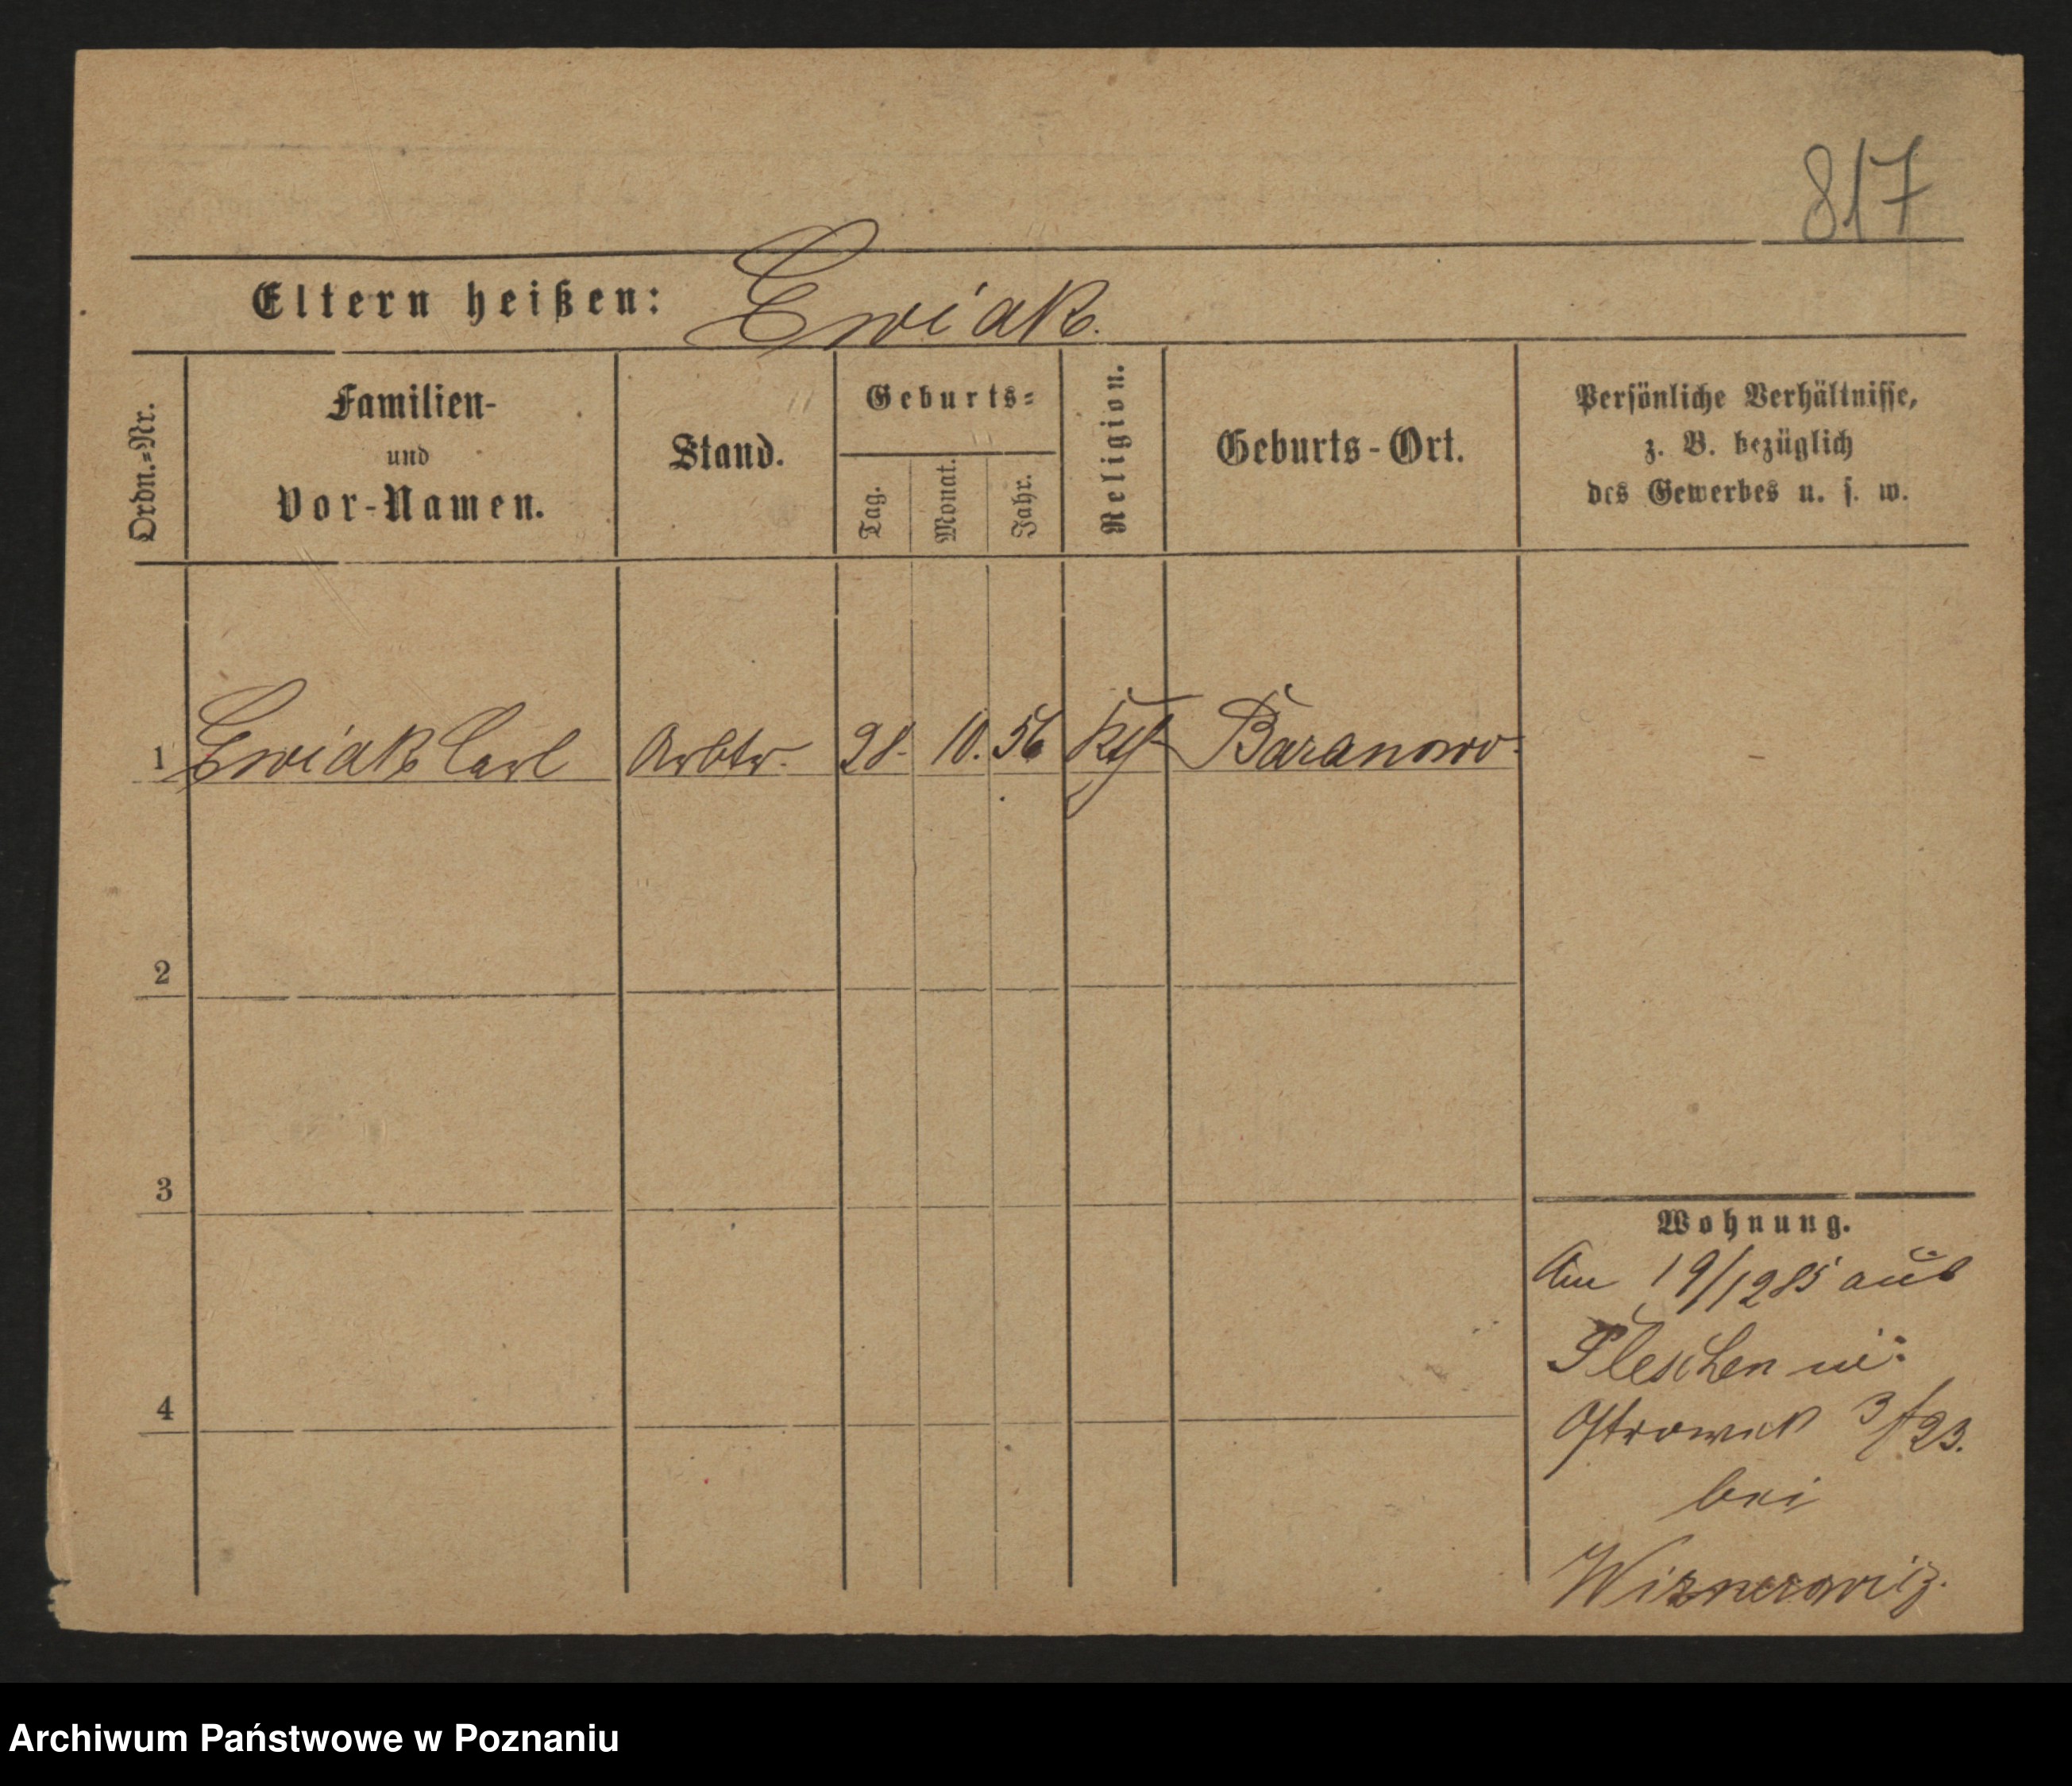 817
Eltern heißen: Ewiak.
Ordn.=Nr.
Familien-
und
Vor-Namen.
Stand.
Geburts=
Tag.
Monat.
Jahr.
Religion.
Geburts-Ort.
Persönliche Verhältnisse,
z. B. bezüglich
des Gewerbes u. s. w.
1 Ewiak Carl Arbtr. 28. 10. 56 Kth Baranowo.
2
3
4
Wohnung.
Am 19/12 85 aus
Pleschen
Ostrowek 3/23.
bei
Archiwum Państwowe w Poznaniu